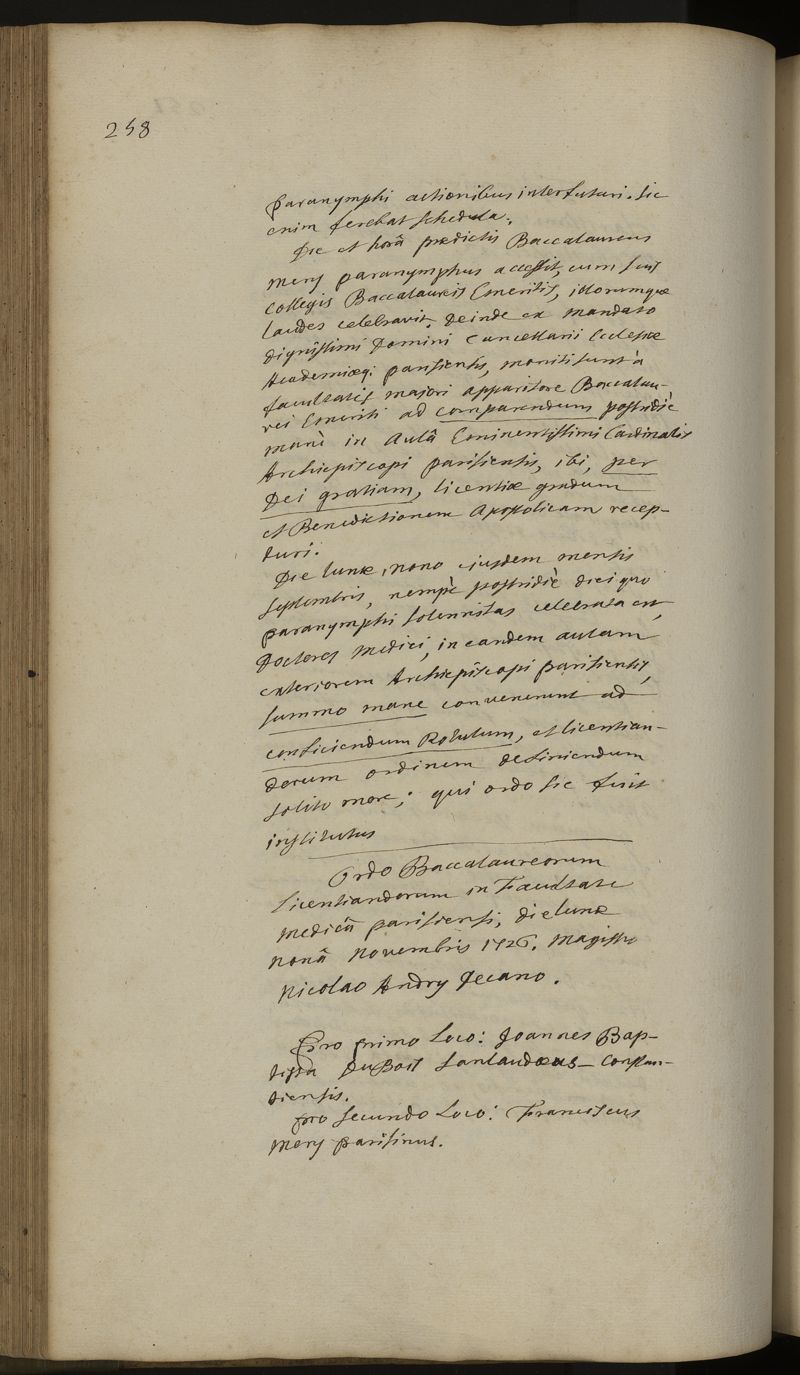 258
paranymphi actionibus interfuturi. sic
enim ferebat schedula.
Die et horâ praedictis Baccalaureus
Mery paranymphus accessit, cum suis
collegis Baccalaureis Emeritis, illorumque
laudes celebravit. Deinde ex mandato
dignissimi Domini Cancellarii Ecclesiae
Academiaeq; parisiensis, moniti sunt à
facultatis majori apparitore Baccalau-
rei Emeriti ad comparendum postridiè
manè in Aulâ Eminentissimi Cardinalis
Archiepiscopi parisiensis, ibi, per
Dei gratiam, licentiae gradum
et Benedictionem Apostolicam recep-
turi.
Die lunae, nono ejusdem mensis
septembris, nempè postridiè diei quo
paranymphi solemnitas celebrata est,
Doctores Medici, in eandem aulam
exteriorem Archiepiscopi parisiensis,
summo mane convenerunt ad
conficiendum Rotulum, et licentian-
dorum ordinem definiendum
solito more; qui ordo sic fuit
institutus
Ordo Baccalaureorum
licentiandorum in Facultate
Medicâ parisiensi, die lunae
nonâ Novembris 1726. Magistro
Nicolao Andry Decano.
Pro primo Loco: Joannes Bap-
tista DuBois Sanlaudaeus - Constan-
tiensis.
pro secundo Loco: Franciscus
Mery parisinus.